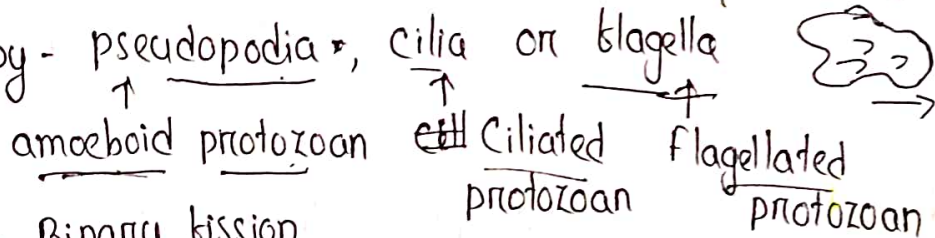 by - pseudopodia, cilia or flagella
amoeboid protozoan Ciliated Flagellated
protozoan protozoan
Binary fission